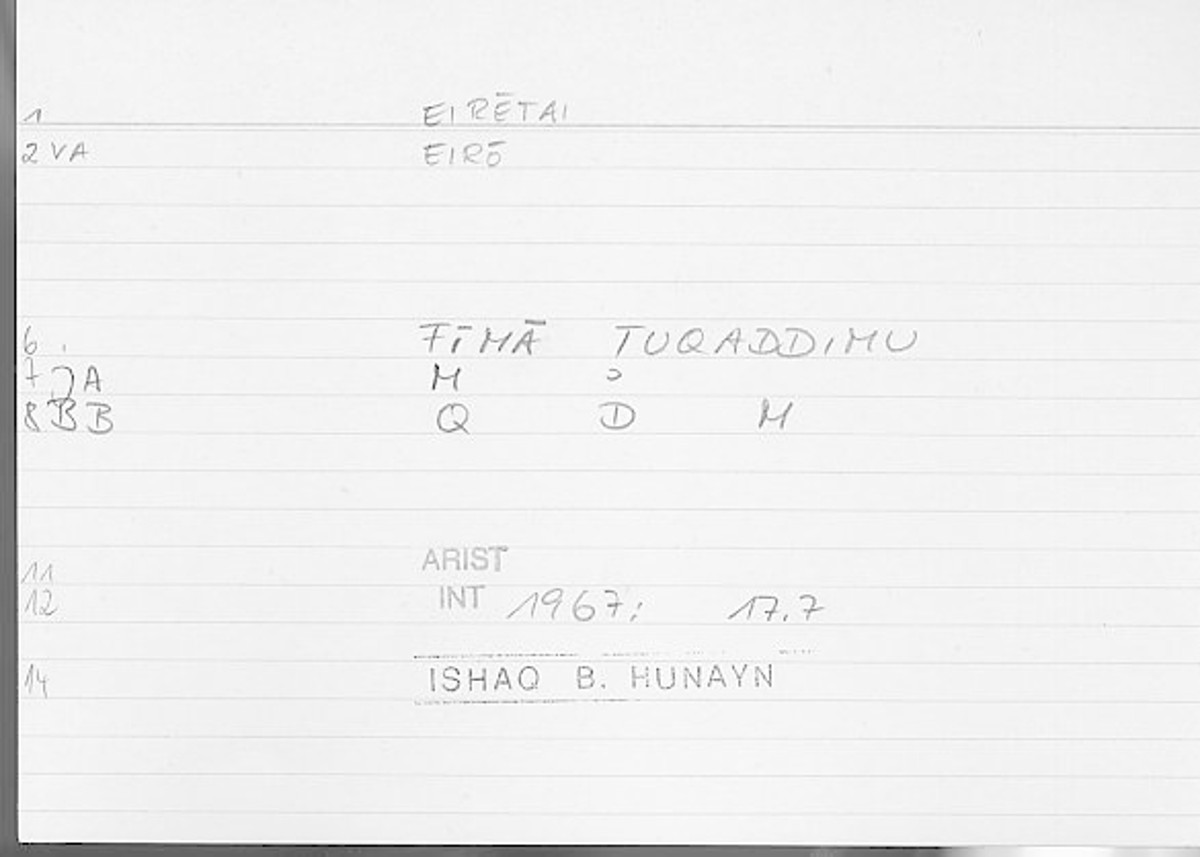 1 EIRĒTAI
2 VA EIRŌ
6 . FĪMĀ TUQADDIMU
7 A M ɔ
8 B B Q D M
11 ARIST
12 INT 1967; 17.7
14 ISHAQ B. HUNAYN